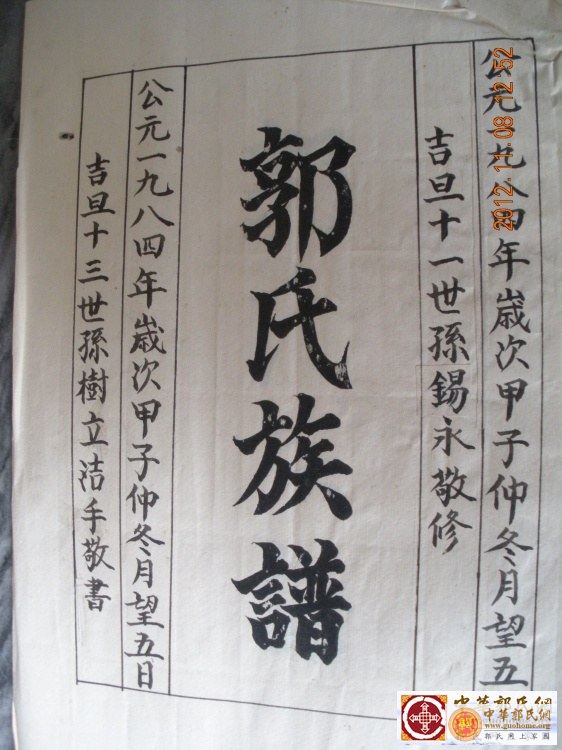 公元一九八四年歲次甲子仲冬月望五
吉旦十一世孫錫永敬修
郭氏族譜
公元一九八四年歲次甲子仲冬月望五日
吉旦十三世孫樹立洁手敬書
2012.11.08 12:52
中華郭氏網
中華郭氏網
www.guohome.org
郭氏網上家園